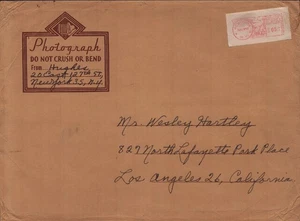 Photograph
DO NOT CRUSH OR BEND
From Hughes
20 East 127th St,
New York 35, N.Y.
Mr. Wesley Hartley
827 North Lafayette Park Place
Los Angeles 26, California